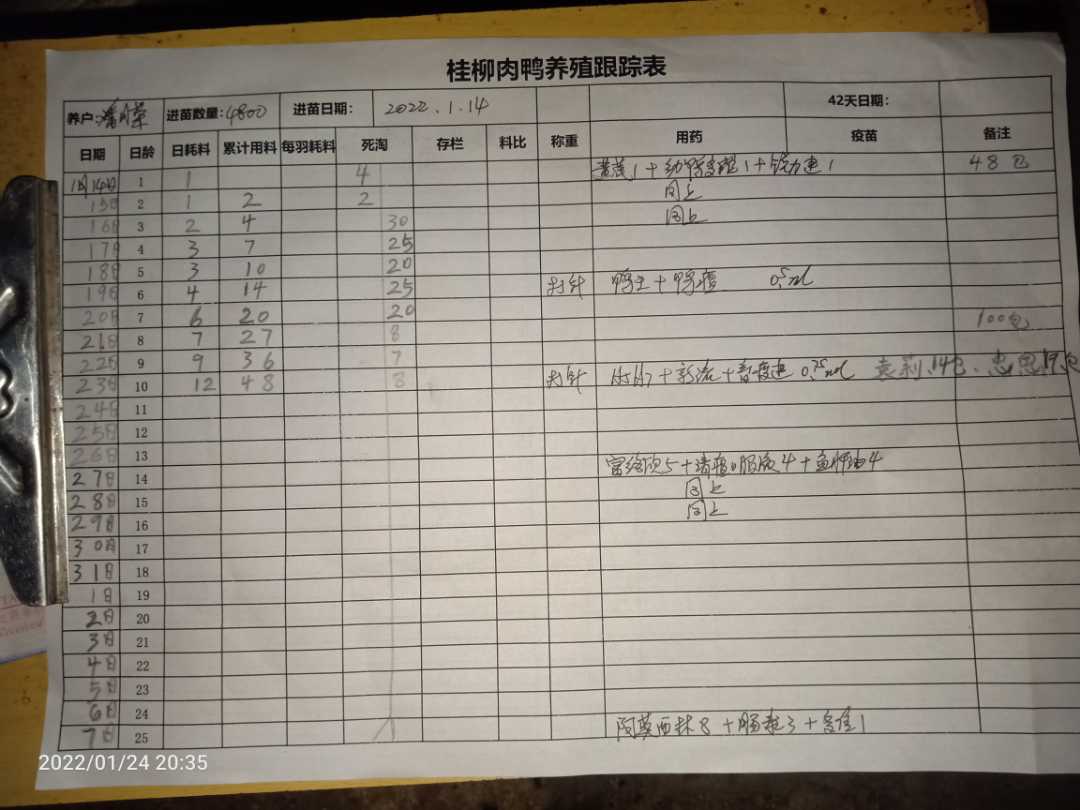 桂柳肉鸭养殖跟踪表
养户: 进苗数量:4800 进苗日期: 2022.1.14 42天日期:
日期 日龄 日耗料 累计用料 每羽耗料 死淘 存栏 料比 称重 用药 疫苗 备注
1月14日 1 1 4 1 + 1 + 1 48包
15日 2 1 2 2 同上
16日 3 2 4 30 同上
17日 4 3 7 25
18日 5 3 10 20
19日 6 4 14 25 打针 0.5ml
20日 7 6 20 20 100包
21日 8 7 27 8
22日 9 9 36 7
23日 10 12 48 8 打针 H5H7 + 新流 + 0.75ml
24日 11
25日 12
26日 13 5 + 清瘟口服液4 + 鱼肝油4
27日 14 同上
28日 15 同上
29日 16
30日 17
31日 18
1日 19
2日 20
3日 21
4日 22
5日 23
6日 24
7日 25 阿莫西林8 + 3 + 1
2022/01/24 20:35